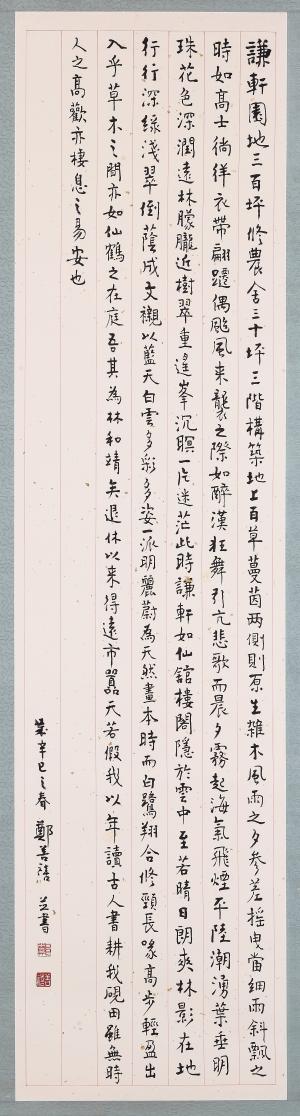 謙軒園地三百坪修農舍三十坪三階構築地上百草蔓茵兩側則原生雜木風雨之夕參差搖曳當細雨斜飄之
時如高士徜徉衣帶翩躚偶颱風來襲之際如醉漢狂舞引亢悲歌而晨夕霧起海氣飛煙平陸潮湧葉垂明
珠花色深潤遠林朦朧近樹翠重遙峯沉暝一片迷茫此時謙軒如仙館樓閣隱於雲中至若晴日朗爽林影在地
行行深綠淺翠倒蔭成文襯以藍天白雲多彩多姿一派明麗蔚為天然畫本時而白鷺翔合修頸長喙高步輕盈出
入乎草木之間亦如仙鶴之在庭吾其為林和靖矣退休以來得遠市囂天若假我以年讀古人書耕我硯田雖無時
人之高歡亦棲息之易安也
歲辛巳之春 鄭善禧 並書